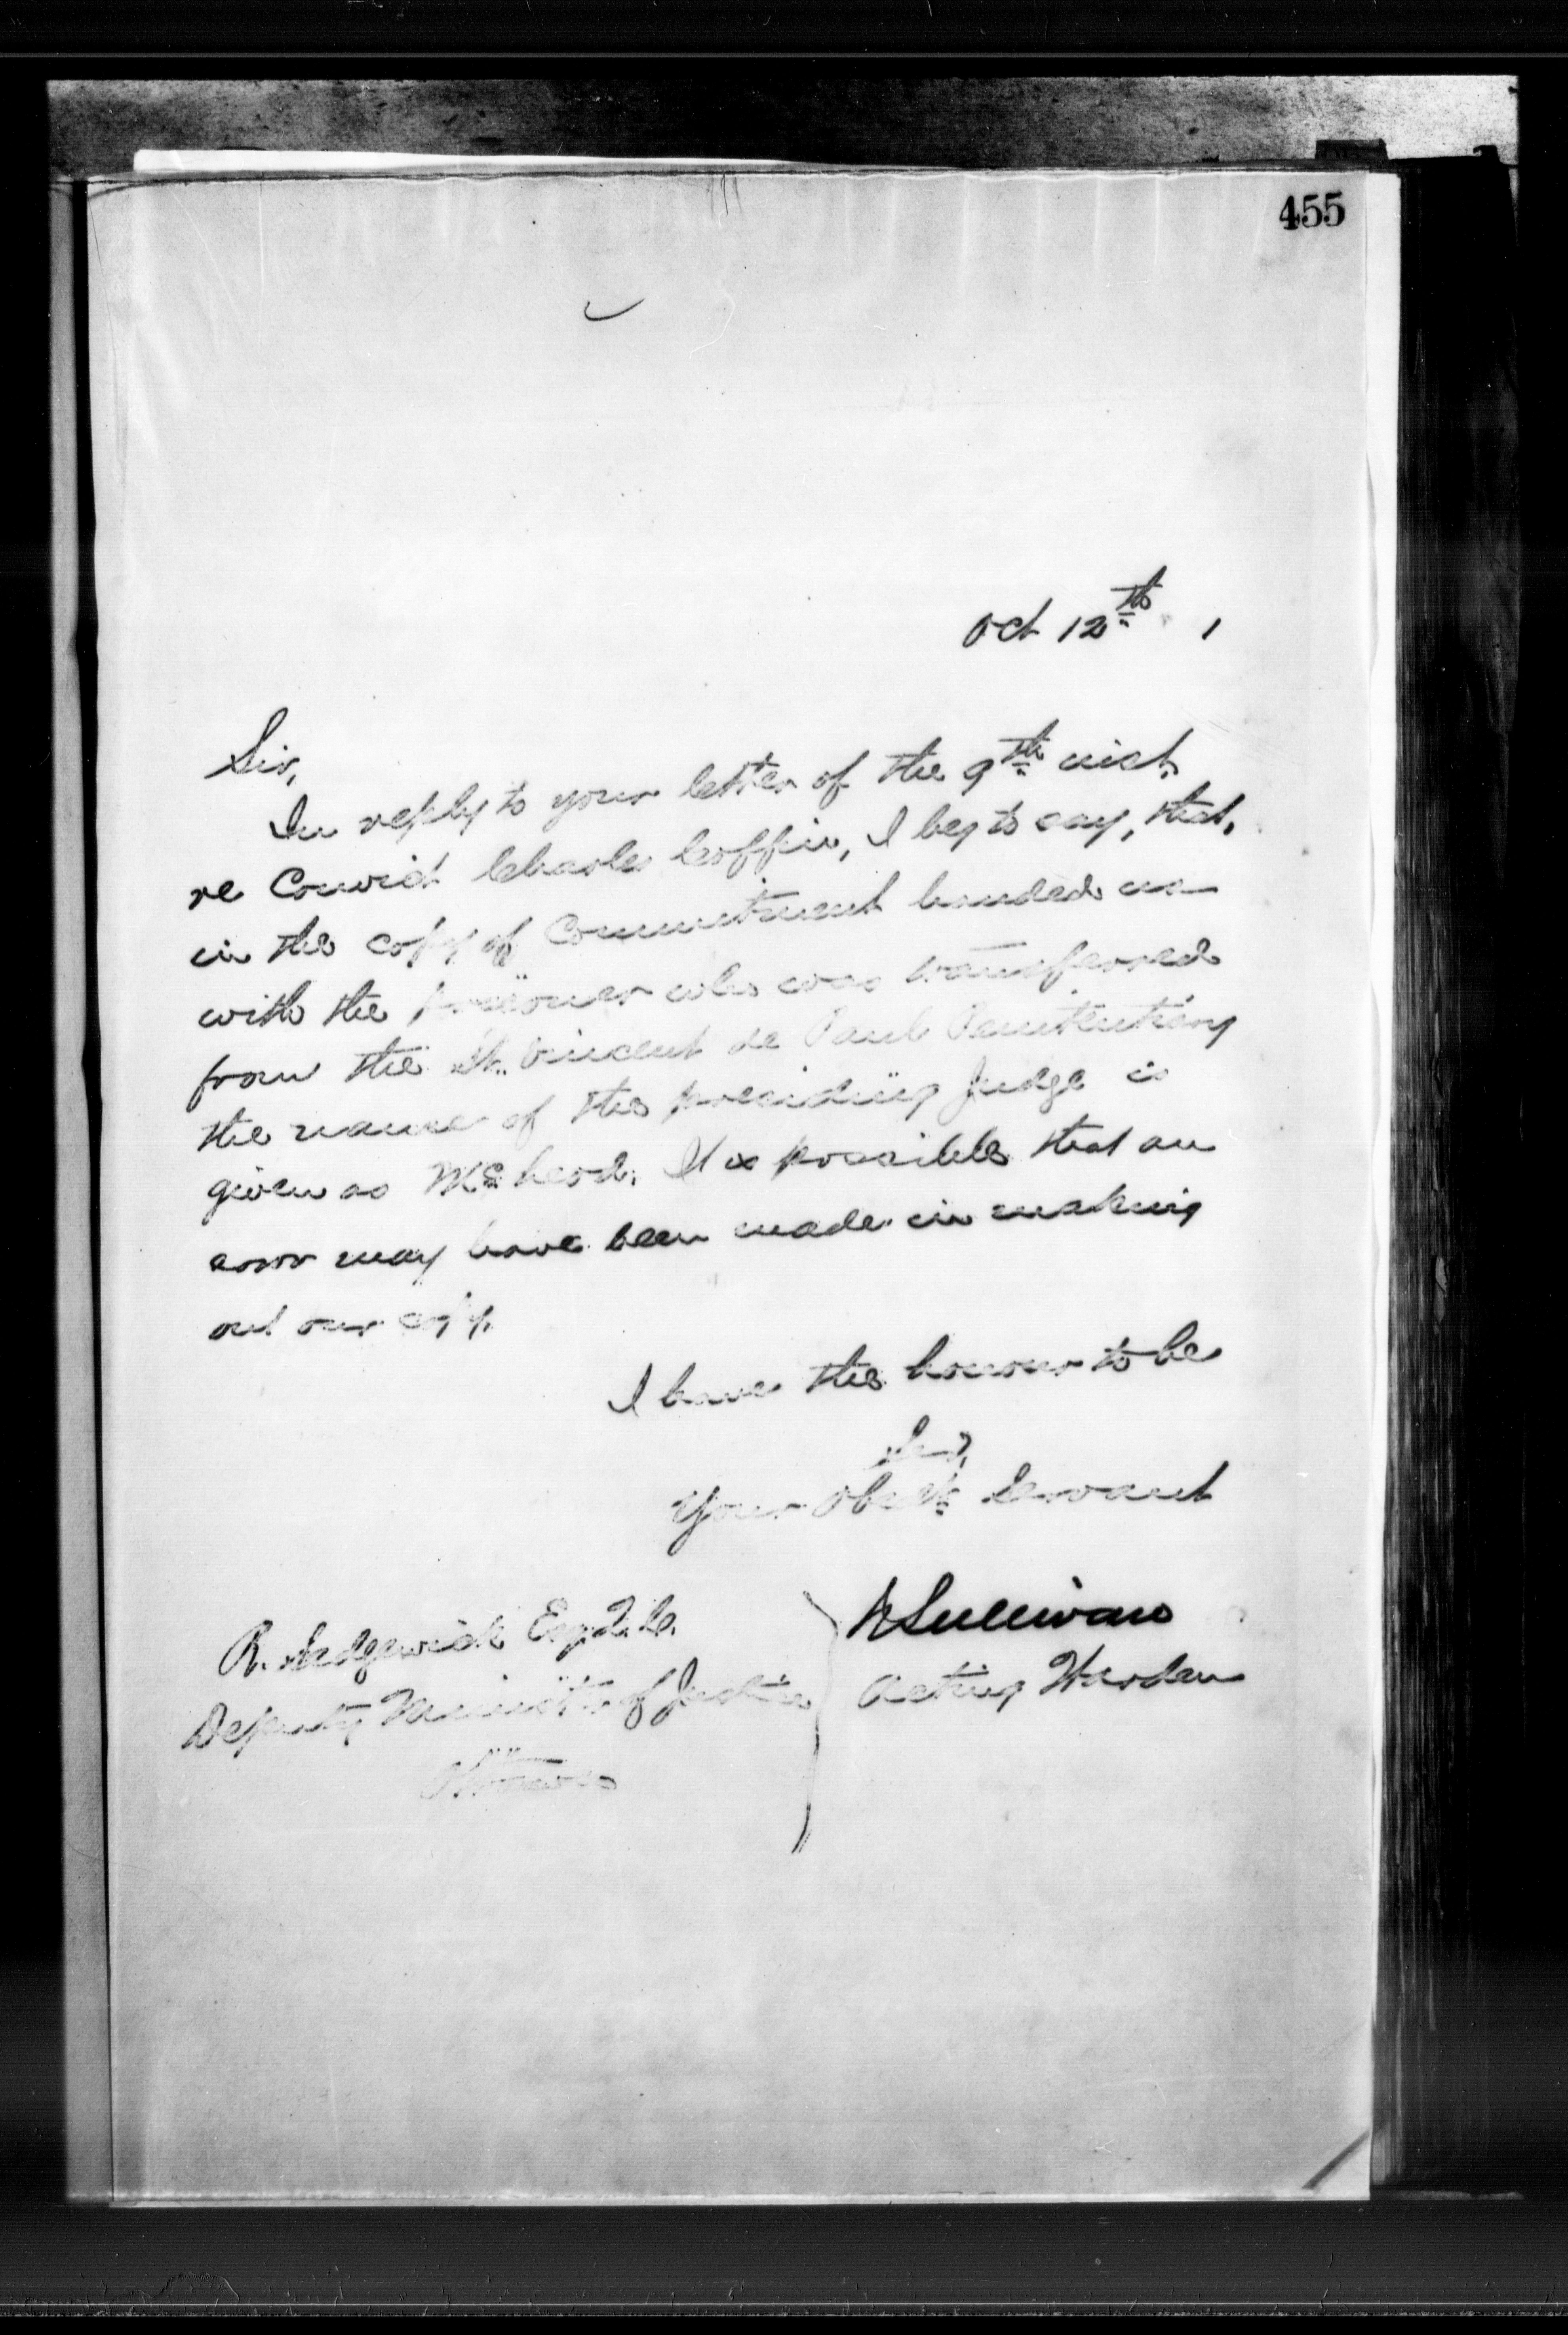 455
Oct 12th 1
Sir,
In reply to your letter of the 9th inst.
re Convict Charles Coffin, I beg to say, that,
in the copy of Commitment handed us
with the prisoner who was transferred
from the St. Vincent de Paul Penitentiary
the name of the presiding Judge is
given as McLeod. It is possible that an
error may have been made in making
out our copy.
I have the honour to be
Sir,
Your Obedt. Servant
R. Sedgewick Esq. Q.C.
Deputy Minister of Justice
Ottawa
Sullivan
Acting Warden